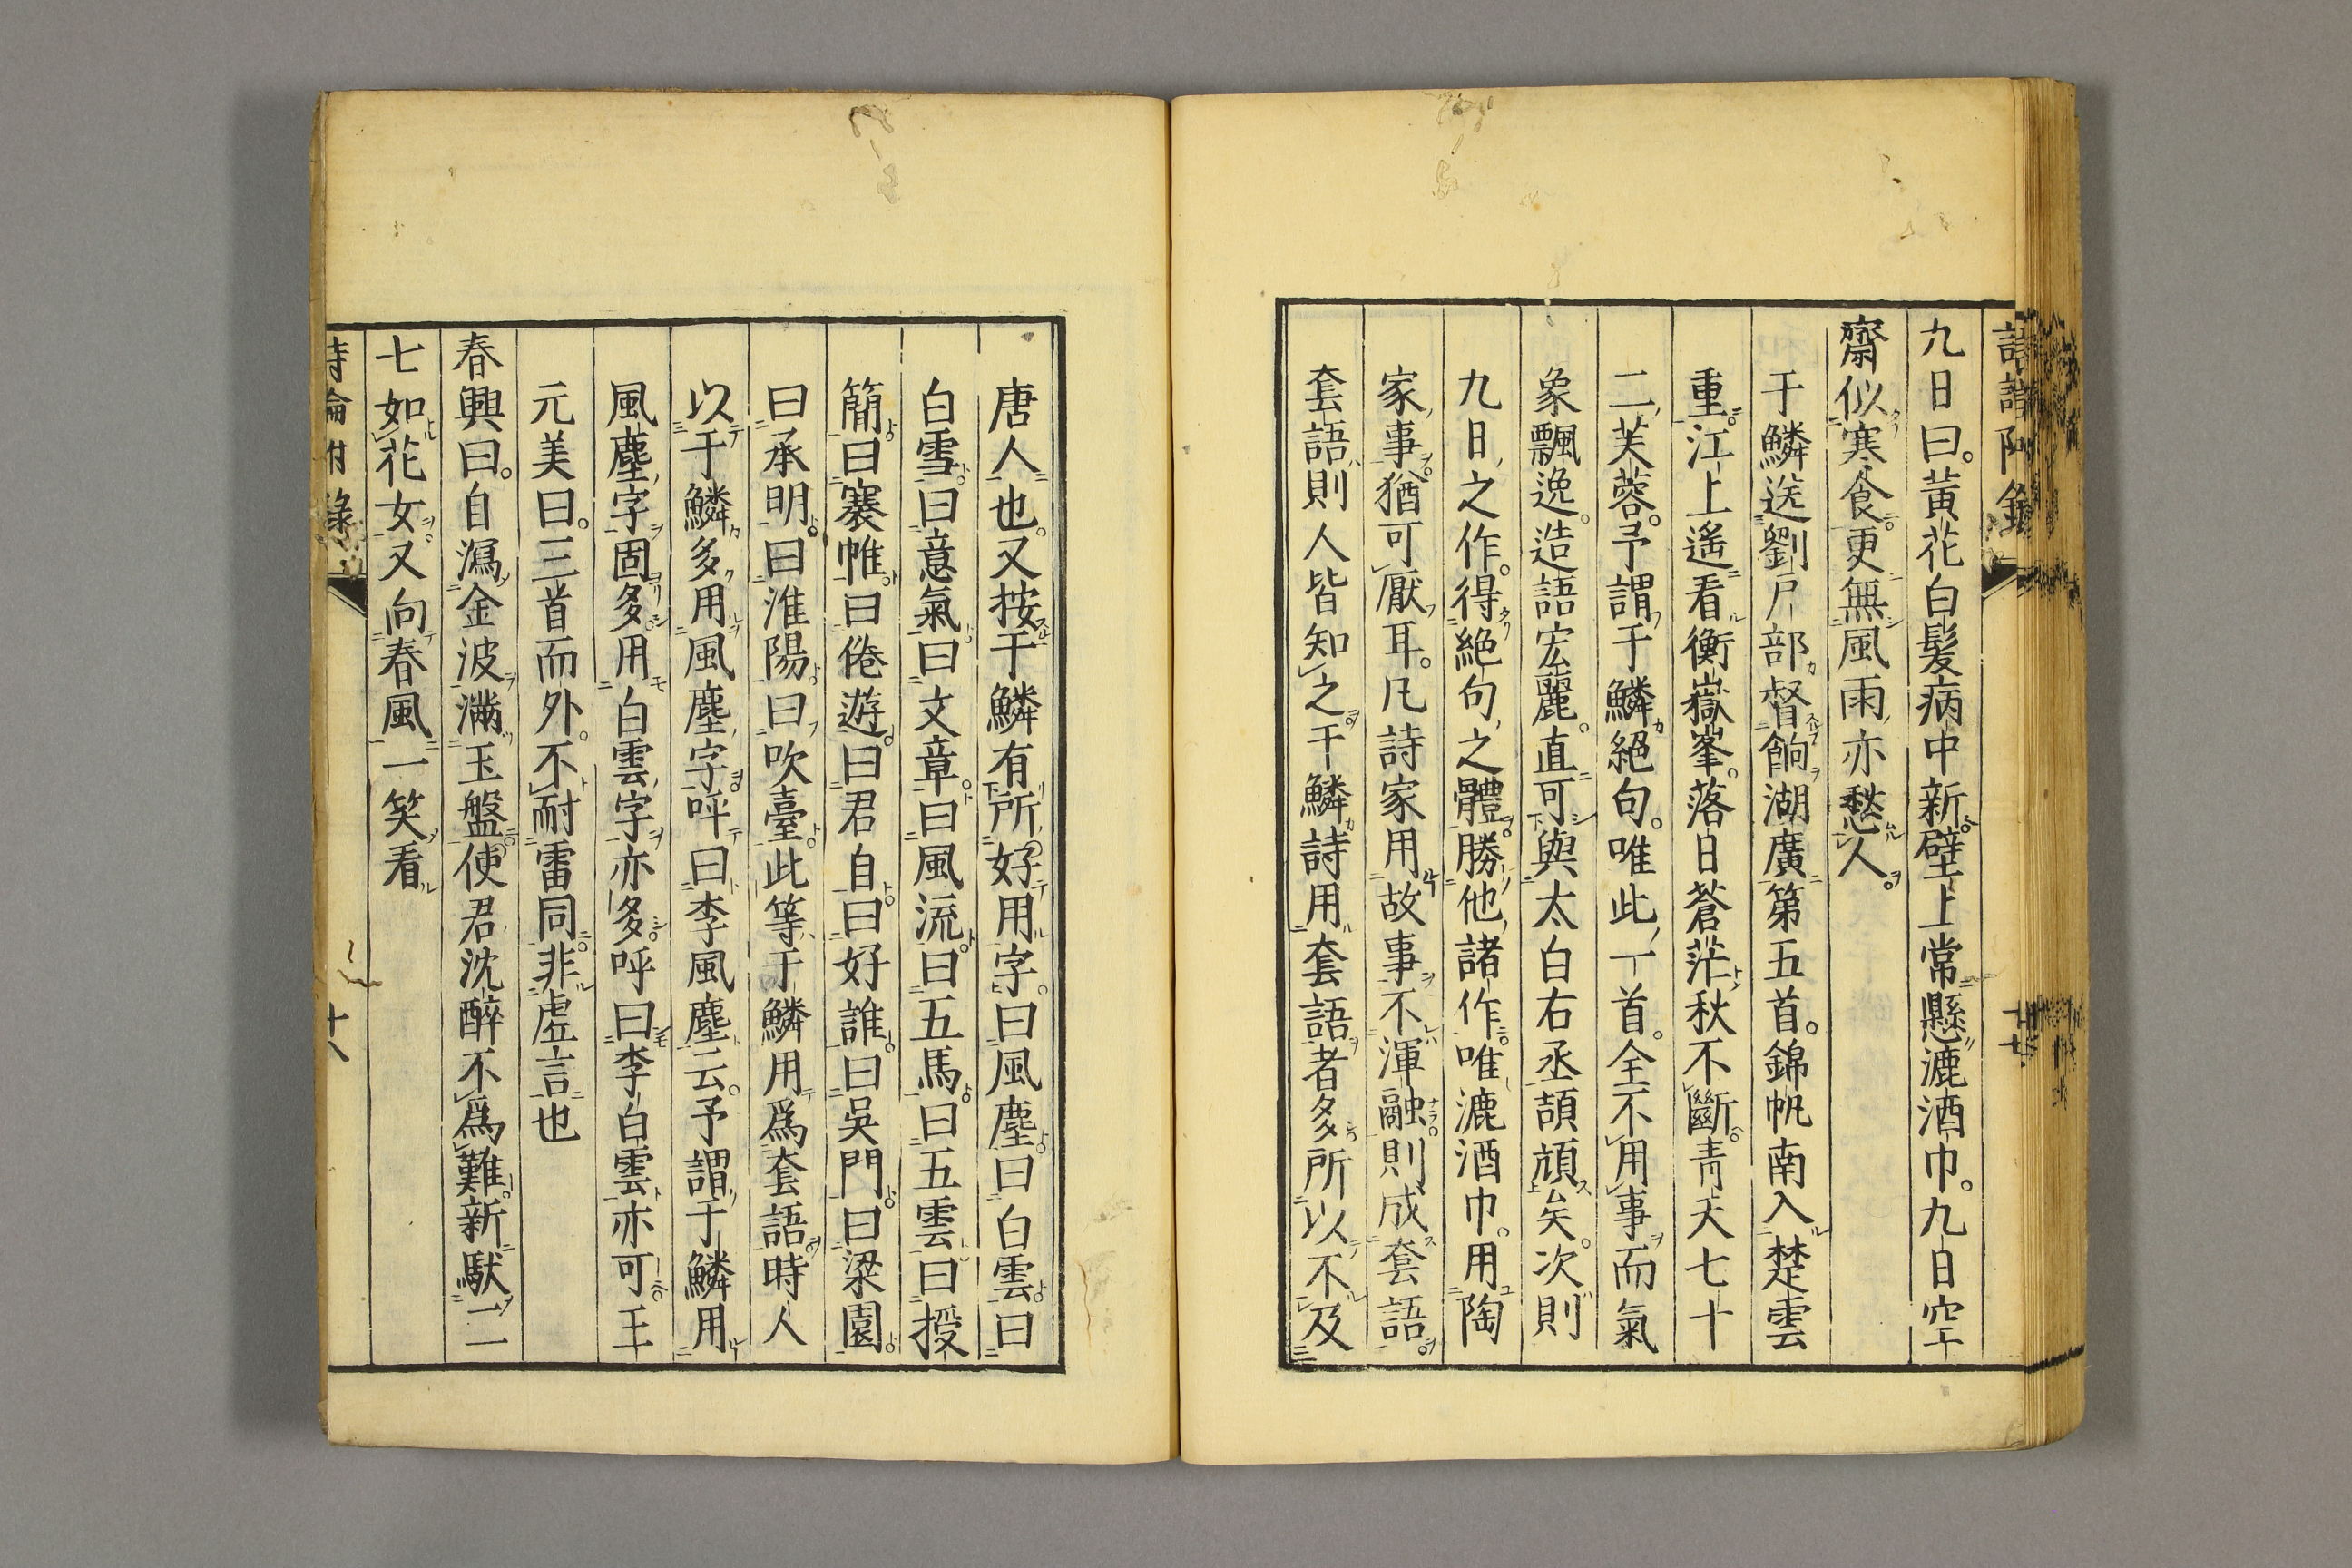 九日曰。黃花白髮病中新。壁上常懸漉酒巾。九日空
齋似寒食。更無風雨亦愁人。
于鱗送劉戸部督餉湖廣第五首。錦帆南入楚雲
重。江上遙看衡嶽峯。落日蒼茫秋不斷。青天七十
二芙蓉。予謂于鱗絕句。唯此一首。全不用事而氣
象飄逸。造語宏麗。直可與太白右丞頡頏矣。次則
九日之作。得絕句之體。勝他諸作。唯漉酒巾。用陶
家事。猶可厭耳。凡詩家用故事。不渾融則成套語。
套語則人皆知之。于鱗詩用套語者多。所以不及
唐人也。又按于鱗有所好用字。曰風塵。曰白雲。曰
白雪。曰意氣。曰文章。曰風流。曰五馬。曰五雲。曰授
簡。曰褰帷。曰倦遊。曰君自。曰好誰。曰吳門。曰梁園。
曰承明。曰淮陽。曰吹臺。此等于鱗用爲套語。時人
以于鱗多用風塵字。呼曰李風塵云。予謂于鱗用
風塵字固多。用白雲字亦多。呼曰李白雲亦可。王
元美曰。三首而外。不耐雷同。非虛言也
春興曰。自瀉金波滿玉盤。使君沈醉不爲難。新馱二
七如花女。又向春風一笑看
詩論附錄
十八